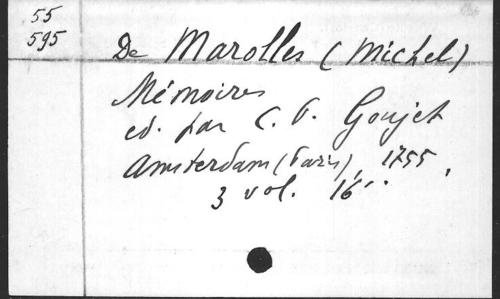 55
595
De Marolles (Michel)
Mémoires
ed. par C. P. Goujet
Amsterdam (Paris), 1755,
3 vol. 16°.